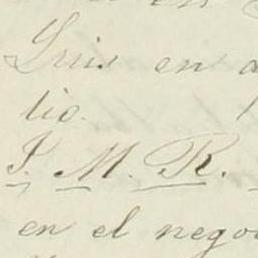 Luis en
tio.
J. M. R.
en el nego